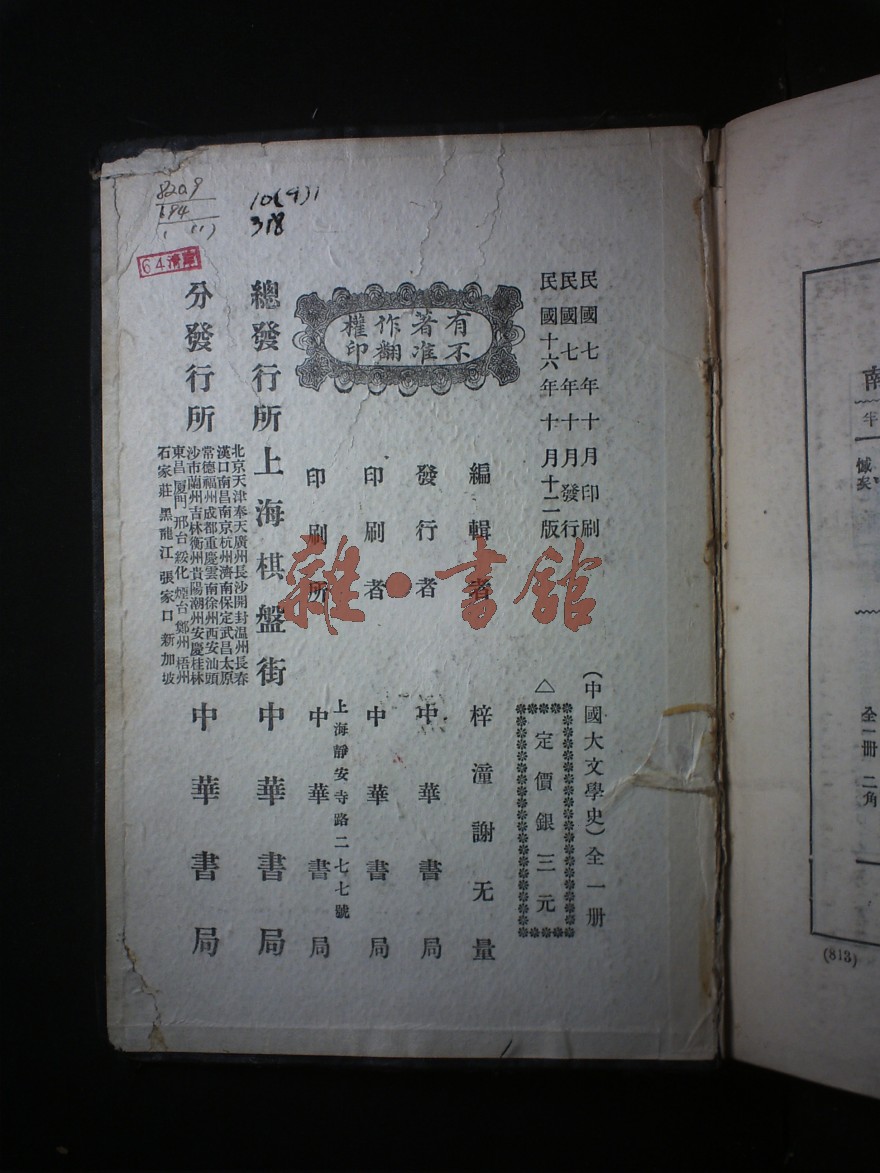 民國七年十月印刷
民國七年十月發行
民國十六年十月十二版
(中國大文學史)全一册
△定價銀三元
有不
著准
作翻
權印
編輯者 梓潼謝无量
發行者 中華書局
印刷者 中華書局
上海靜安寺路二七七號
印刷所 中華書局
總發行所 上海棋盤街 中華書局
分發行所
北京天津奉天廣州長沙開封温州長春
漢口南昌南京杭州濟南保定武昌太原
常德福州成都重慶雲南徐州西安汕頭
沙市蘭州吉林衡州貴陽潮州安慶桂林
東昌厦門邢台綏化煙台鄭州梧州
石家莊黑龍江張家口新加坡
中華書局
10(4)1
318
雜·書館
南
全一册 二角
(813)